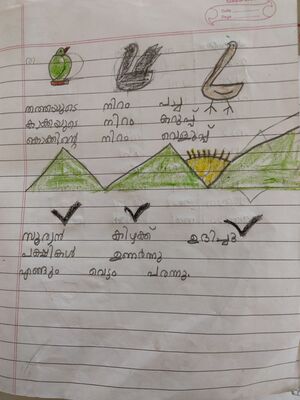 തത്തയുടെ നിറം പച്ച
കാക്കയുടെ നിറം കറുപ്പ്
കൊക്കിന്റെ നിറം വെളുപ്പ്
സൂര്യൻ കിഴക്ക് ഉദിച്ചു
പക്ഷികൾ ഉണർന്നു
എങ്ങും വെട്ടം പരന്നു.